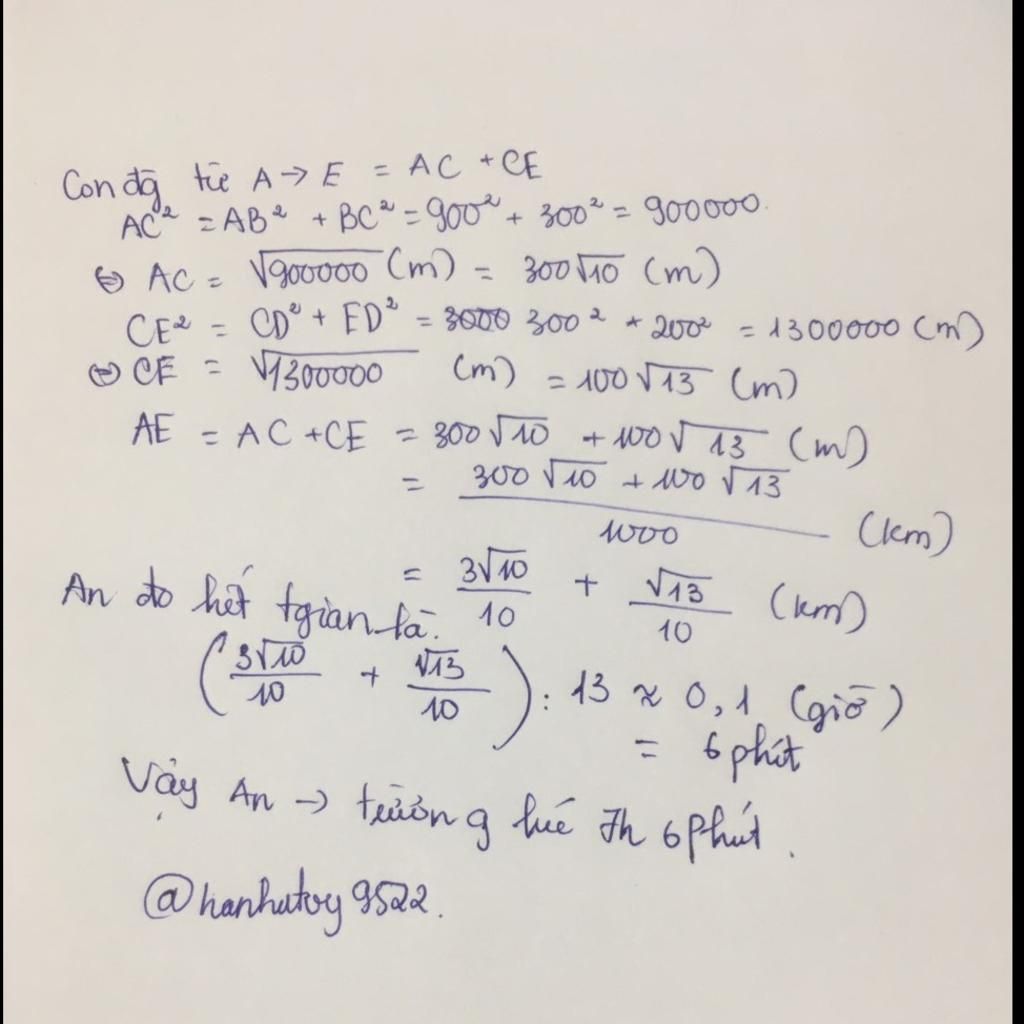 Con đg từ A → E = AC + CE
AC² = AB² + BC² = 900² + 300² = 900000.
⇔ AC = √900000 (m) = 300√10 (m)
CE² = CD² + ED² = 300² + 200² = 1300000 (m)
⇔ CE = √1300000 (m) = 100√13 (m)
AE = AC + CE = 300√10 + 100√13 (m)
= (300√10 + 100√13)/1000 (km)
= 3√10/10 + √13/10 (km)
An đo hết tgian là:
(3√10/10 + √13/10) : 13 ≈ 0,1 (giờ)
= 6 phút
Vậy An → trường lúc 7h 6 phút.
@hanhutoy9522.